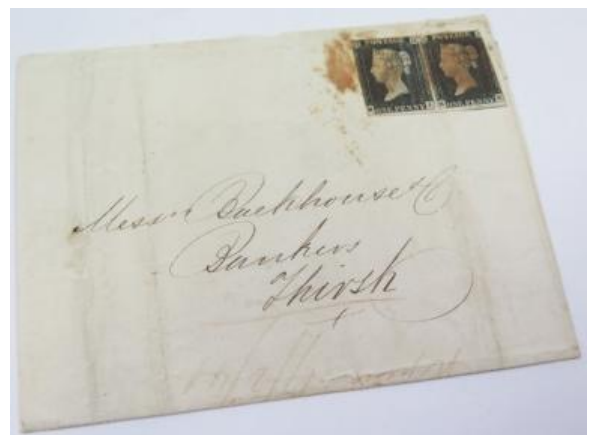 POSTAGE POSTAGE
ONE PENNY ONE PENNY
Messrs Backhouse & Co
Bankers
Thirsk